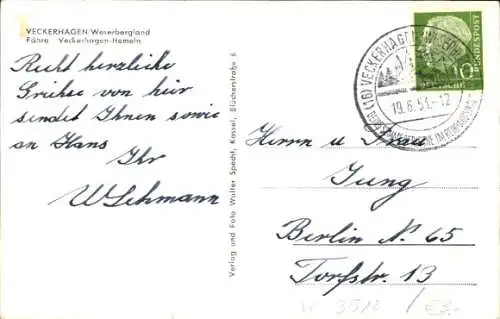 VECKERHAGEN/Weserbergland
Fähre Veckerhagen-Hemeln
Recht herzliche
Grüße von hier
sendet Ihnen sowie
an Hans
Ihr
W. Lehmann
Verlag und Foto Walter Specht, Kassel, Blücherstraße 6
(16) VECKERHAGEN
19.6.54.-12
DEUTSCHE BUNDESPOST
10
Herrn u. Frau
Jung
Berlin N. 65
Torfstr. 13
W 3512
€3.-